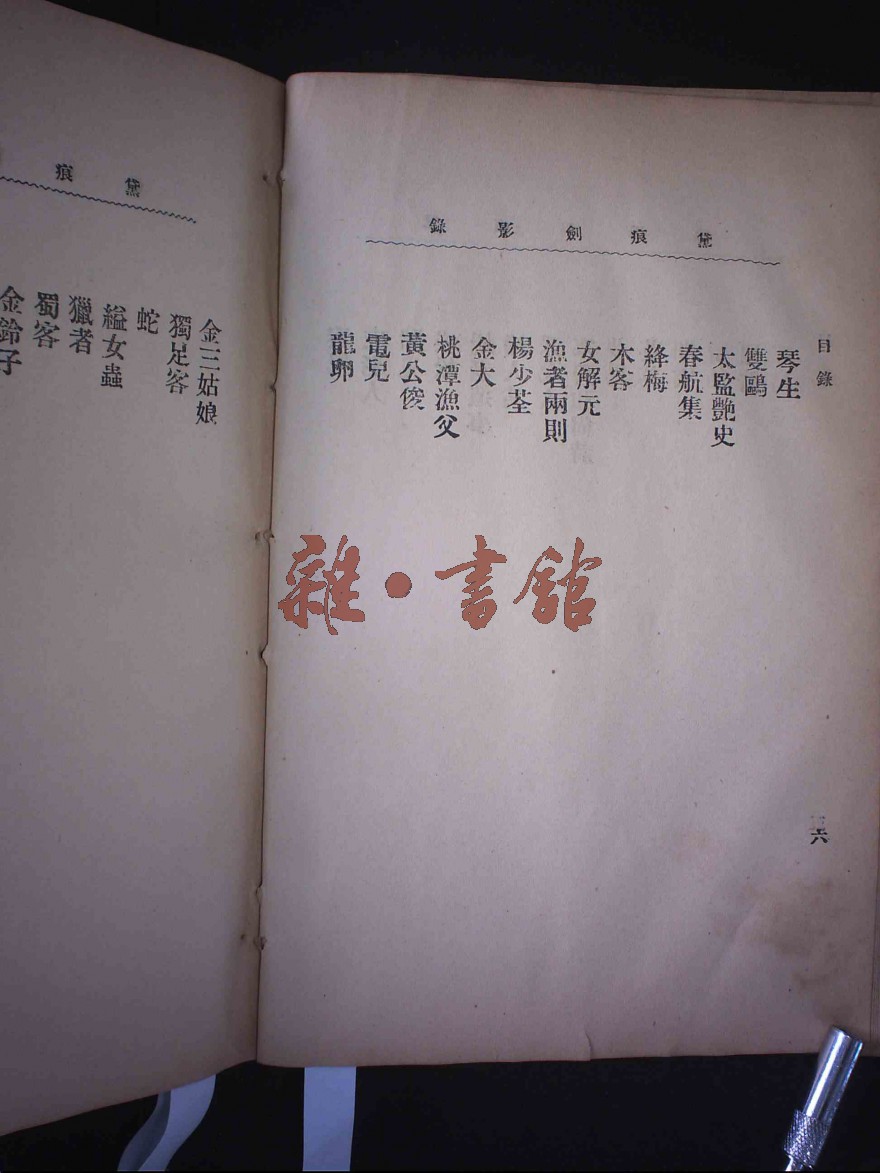 黛痕劍影錄
目錄
琴生
雙鷗
太監艷史
春航集
絳梅
木客
女解元
漁者兩則
楊少荃
金大
桃潭漁父
黃公俊
電兒
龍卵
六
黛痕
金三姑娘
獨足客
蛇
縊女蟲
獵者
蜀客
金鈴子
雜·書館